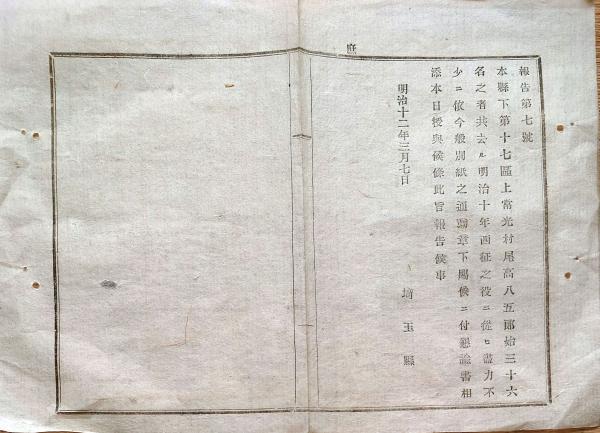 報告第七號
本縣下第十七區上常光村尾高八五郎始三十六
名之者共去ル明治十年西征之役ニ從ヒ盡力不
少ニ依今般別紙之通勳章下賜候ニ付懇諭書相
添本日授與候條此旨報告候事
明治十二年三月七日
埼玉縣
庶